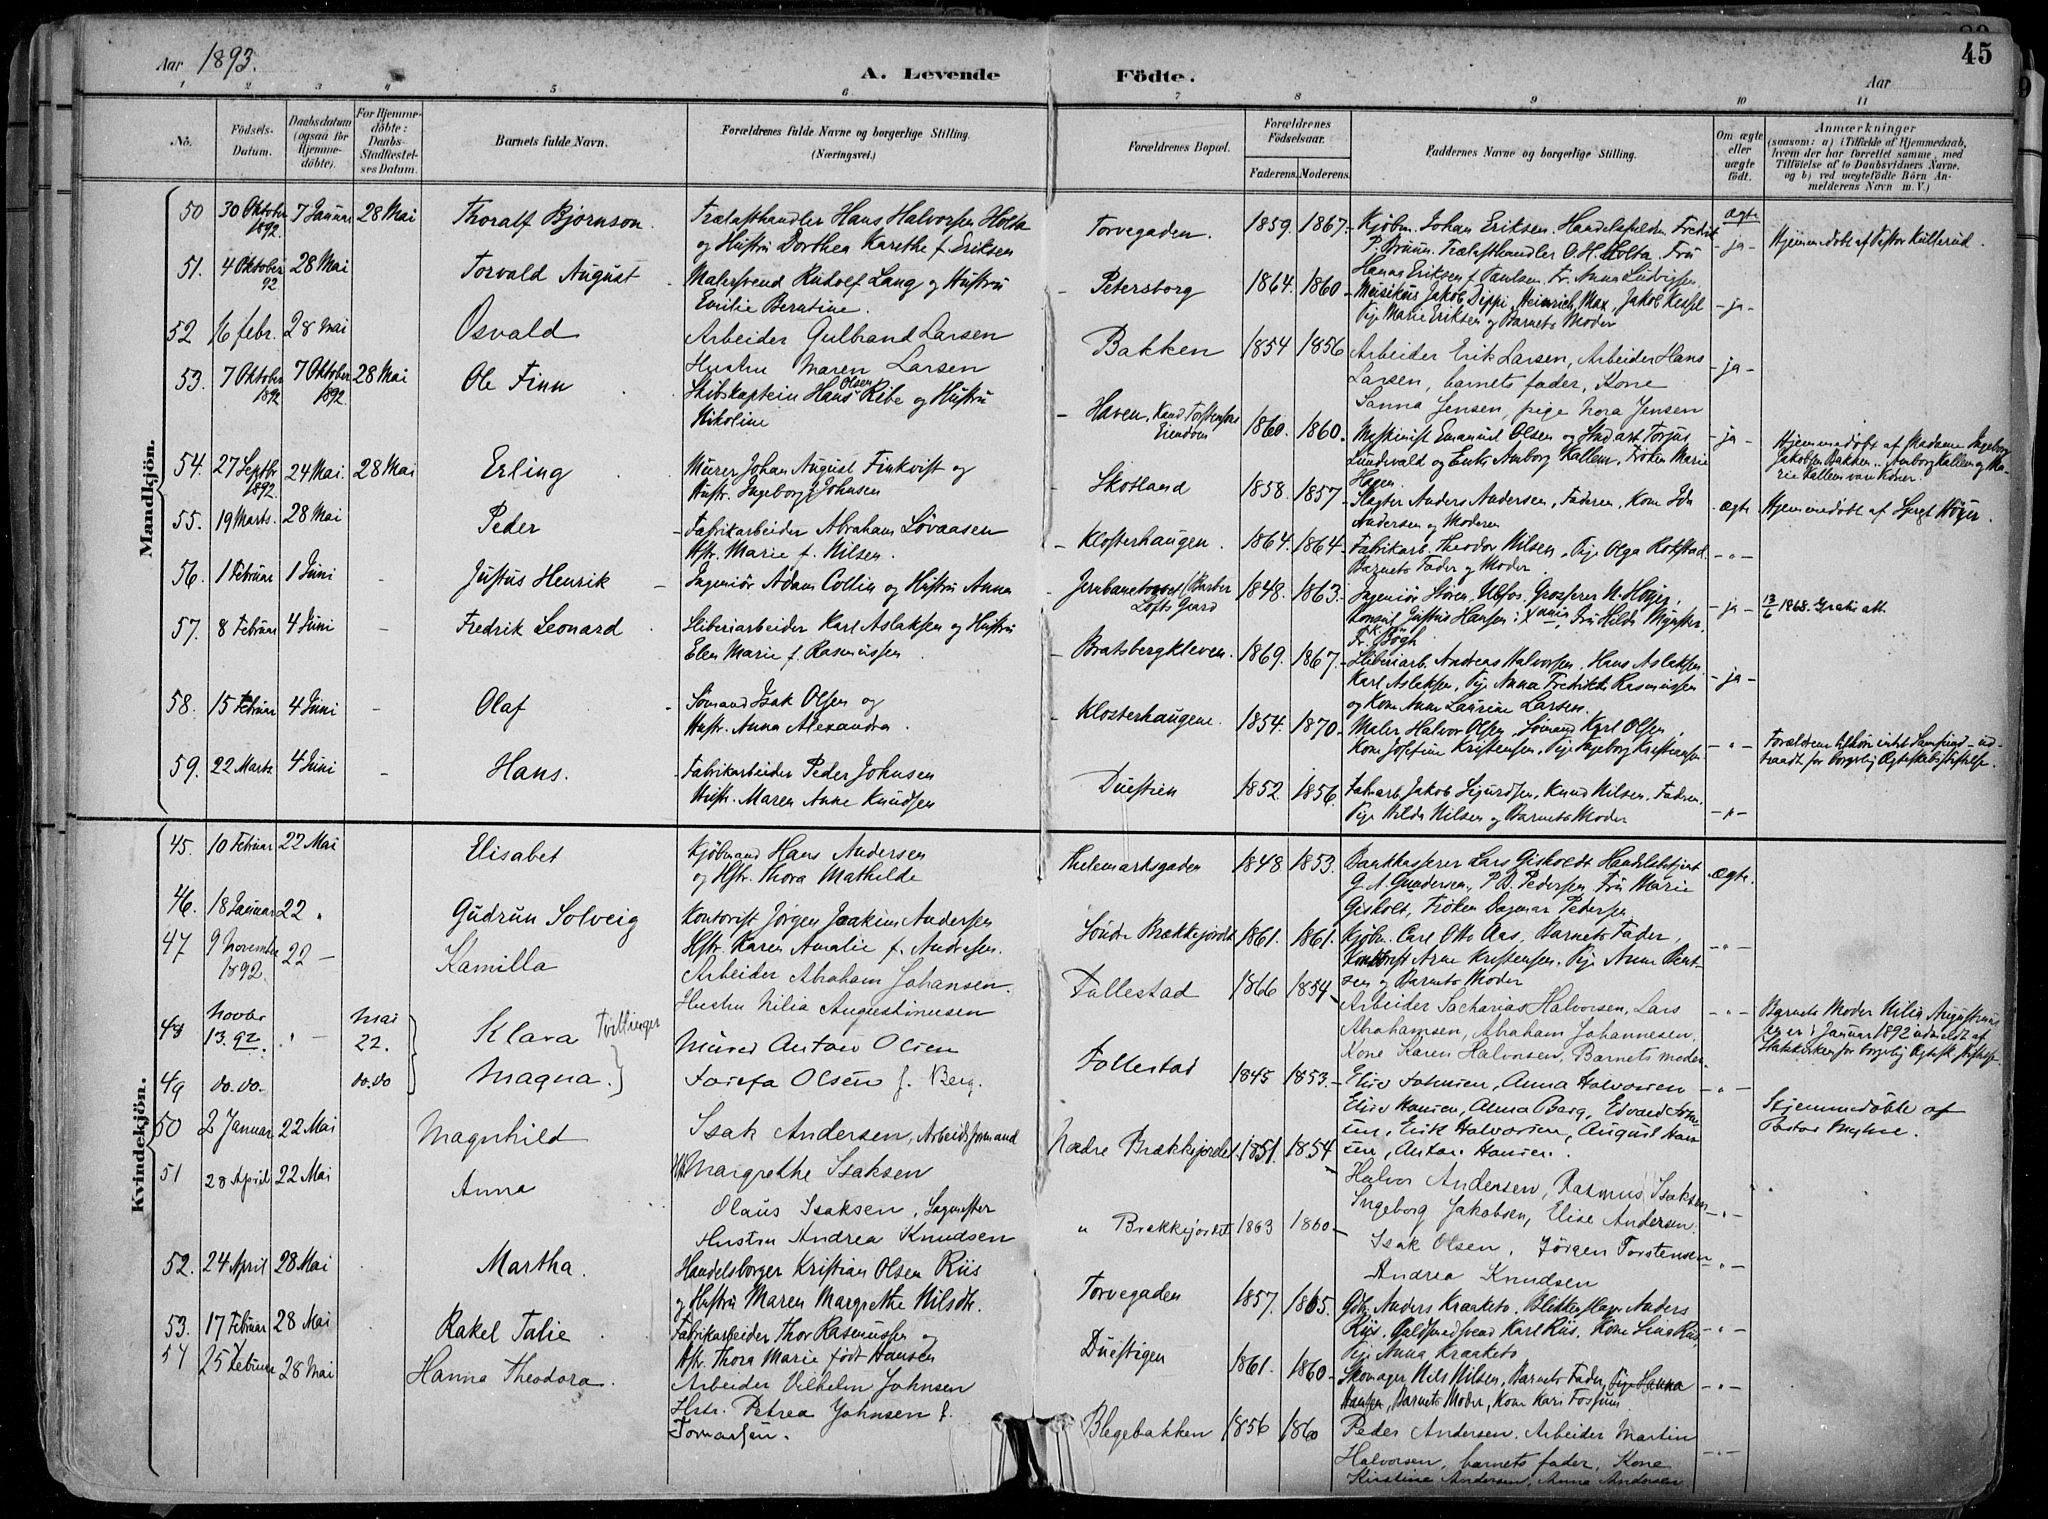 Aar 1893.
A. Levende Födte.
Aar
45
1 2 3 4 5 6 7 8 9 10 11
No.
Födsels-Datum.
Daabsdatum (ogsaa for Hjemmedöbte).
For Hjemmedöbte: Daabs-Stadfæstelses Datum.
Barnets fulde Navn.
Forældrenes fulde Navne og borgerlige Stilling. (Næringsvei.)
Forældrenes Bopæl.
Forældrenes Födselsaar.
Faderens. Moderens.
Faddernes Navne og borgerlige Stilling.
Om ægte eller uægte födt.
Anmærkninger (saasom: a) i Tilfælde af Hjemmedaab, hvem der har forrettet samme, med Tilföielse af to Daabsvidners Navne, og b) ved uægtefödte Börn Anmelderens Navn m. V.)
Mandkjön.
50 30 Oktober 1892. 7 Januar 28 Mai Thoralf Bjørnson. Trælasthandler Hans Halvorsen Holta
og Hustru Dorthea Karethe f. Eriksen
Torvegaden. 1859. 1867. Kjøbm. Johan Eriksen. Fredrik
P. Bruun. Trælasthandler O. H. Holta. Fru
Hanna Eriksen f. Paulsen. Fr. Anna
ægte ja Hjemmedøbt af Pastor Kullerud.
51. 4 Oktober 92 28 Mai Torvald August Malersvend Rudolf Lang og Hustru
Emilie Berntine.
Petersborg 1864. 1860 Musikus Jakob Deppi, Heinrich Max, Jakob
Pige Marie Eriksen og Barnets Moder
ja
52 16 febr. 28 Mai Osvald Arbeider Gulbrand Larsen
Hustru Maren Larsen
Bakken 1854 1856 Arbeider Erik Larsen, Arbeider Hans
Larsen, barnets fader, Kone
Sanna Jensen, pige Nora Jensen
ja
53. 7 Oktober 1892 7 Oktober 1892. 28 Mai Ole Finn Skibskaptein Hans Olsen Ribe og Hustru
Nikoline
Haven, Knud Torstensens Eiendom 1860. 1860. Maskinist Emanuel Olsen og Stud art Torjus
Lundevald og Enke Amborg Kallem, Frøken Marie
Hagen.
ja Hjemmedøbt af Madame Ingeborg
Jakobsen Bakken. Amborg Kallem og Marie Kallem
54. 27 Septbr. 1892. 24 Mai. 28 Mai Erling Murer Johan August Finkvist og
Hustr. Ingeborg Johnsen
Skotland 1858. 1857 Slagter Anders Andersen, Faderen, Kone Ida
Andersen og Moderen
ægte Hjemmedøbt af Sergt Høyer.
55. 19 Marts. 28 Mai Peder Fabrikarbeider Abraham Løvaasen
Hstr. Marie f. Nilsen.
Klosterhaugen. 1864. 1864. Fabrikarb. Theodor Nilsen, Pige Olga Rokstad
Barnets Fader og Moder
56. 1 Februar 1 Juni Justus Henrik Ingeniør Adam Collin og Hustru Anna
Jernbanetorvet (Barber Lofts Gaard 1848. 1863. Ingeniør Støren, Ulefos, Grosserer N. Høyer,
Konsul Justus Hansen i Xania, Fru Hilda Mynster,
Frk. Bøgh
ja 13/6 1868. Gratis att.
57. 8 Februar 4 Juni Fredrik Leonard Sliberiarbeider Karl Aslaksen og Hustru
Elen Marie f. Rasmussen
Bratsbergkleven. 1869. 1867. Sliberiarb. Andreas Halvorsen. Hans Aslaksen
Karl Aslaksen, Pige Anna Fredrikke Rasmussen
og Kone Anne Laurine Larsen.
ja
58. 15 Februar 4 Juni Olaf Sømand Isak Olsen og
Hustr. Anna Alexandra.
Klosterhaugene. 1854. 1870. Maler Halvor Olsen, Sømand Karl Olsen,
Kone Josefine Kristensen, Pige Ingeborg Kristensen
59. 22 Marts 4 Juni Hans. Fabrikarbeider Peder Johnsen
Hustr. Maren Anne Knudsen
Duestien 1852. 1856. Fabrarb. Jakob Sigurdsen, Knud Nilsen, Faderen
Pige Hilda Nilsen og Barnets Moder
Kvindekjön.
45. 10 Februar 22 Mai Elisabet Kjøbmand Hans Andersen
og Hstr. Thora Mathilde
Thelemarksgaden 1848 1853. Bankkasserer Lars Giskoldt Handelsbetjent
G. A. Gundersen, P. D. Pedersen, Fru Marie
Giskolt, Frøken Dagmar Pedersen
ægte.
46. 18 Januar 22 " Gudrun Solveig Kontorist Jørgen Joakim Andersen
Hstr. Karen Amalie f. Andersen.
Søndre Brækkejordet 1861. 1861. Kjøbm. Carl Otto Aas, Barnets Fader,
Kontorist Arne Kristensen. Pige Anne Bentsen
og Barnets Moder
47 9 November 1892. 22 Kamilla Arbeider Abraham Johansen.
Hustru Nilia Augustinusen
Follestad 1866 1854 Arbeider Sacharias Halvorsen, Lars
Abrahamsen, Abraham Johannesen,
Kone Karen Halvorsen, Barnets moder
Barnets Moder Nilia Augustinusen
er i Januar 1892 udmeldt af
Statskirken for borgerlig Ægtesk.
48 Novbr 13. 92. Mai 22. Klara Tvillinger Murer Anton Olsen
Follestad 1845 1853. Elise Johnsen, Anna Halvorsen
49 do. do. do. do Magna. Josefa Olsen f. Berg.
Elise Hansen, Anna Berg, Edvard
Erik Halvorsen, August Hansen,
Anton Hansen.
Hjemmedøbte af
Pastor Myhre.
50 2 Januar 22 Mai Magnhild Isak Andersen, Arbeidsformand
Margrethe Isaksen
Nedre Brækkejordet 1851. 1854 Halvor Andersen, Rasmus Isaksen
Ingeborg Jakobsen, Elise Andersen
51 28 April 22 Mai Anna Olaus Isaksen, Sagmester
Hustru Andrea Knudsen
" Brækkejordet 1863 1860 Isak Olsen, Jørgen Torstensen
Andrea Knudsen
52. 24 April 28 Mai Martha. Handelsborger Kristian Olsen Riis
og Hustru Maren Margrethe Nilsdtr.
Torvegaden 1857. 1865. Gbr. Anders Kraaketo. Blikkenslager Anders
Riis. Guldsmedsvend Karl Riis. Kone Lina Riis,
Pige Anna Kraaketo
53. 17 Februar 28 Mai Rakel Talie Fabrikarbeider Thor Rasmussen og
Hstr. Thora Marie født Hansen
Duestigen 1861. 1860 Skomager Nils Nilsen, Barnets Fader, Pige Hanna
Hansen, Barnets Moder, Kone Kari Fossum
54 25 Februar 28 Mai Hanna Theodora. Arbeider Vilhelm Johnsen
Hstr. Petrea Johnsen f.
Tomassen.
Blegebakken 1856 1860 Peder Andersen, Arbeider Martin
Halvorsen, barnets fader, Kone
Kirstine Andersen, Anna Andersen